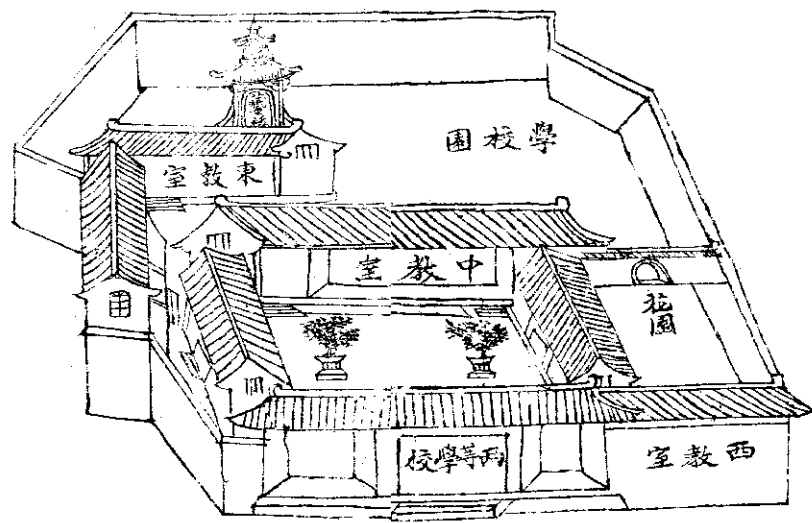 學校園
東教室
中教室
花園
兩等學校
西教室